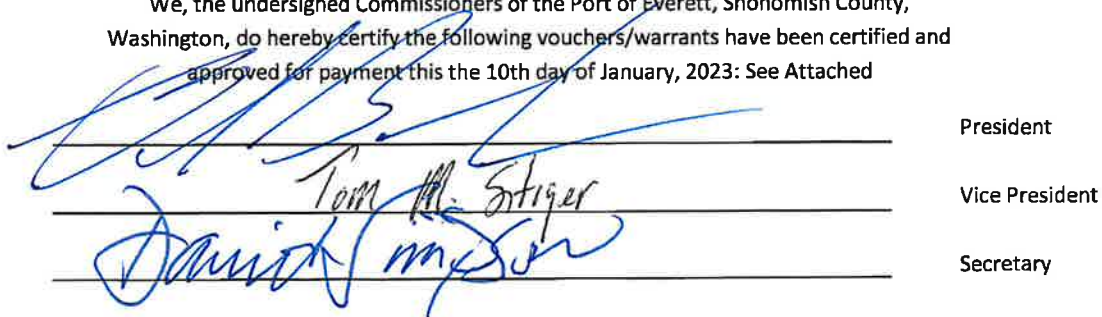 We, the undersigned Commissioners of the Port of Everett, Snohomish County,
Washington, do hereby certify the following vouchers/warrants have been certified and
approved for payment this the 10th day of January, 2023: See Attached
President
Tom M. Stiger
Vice President
Secretary